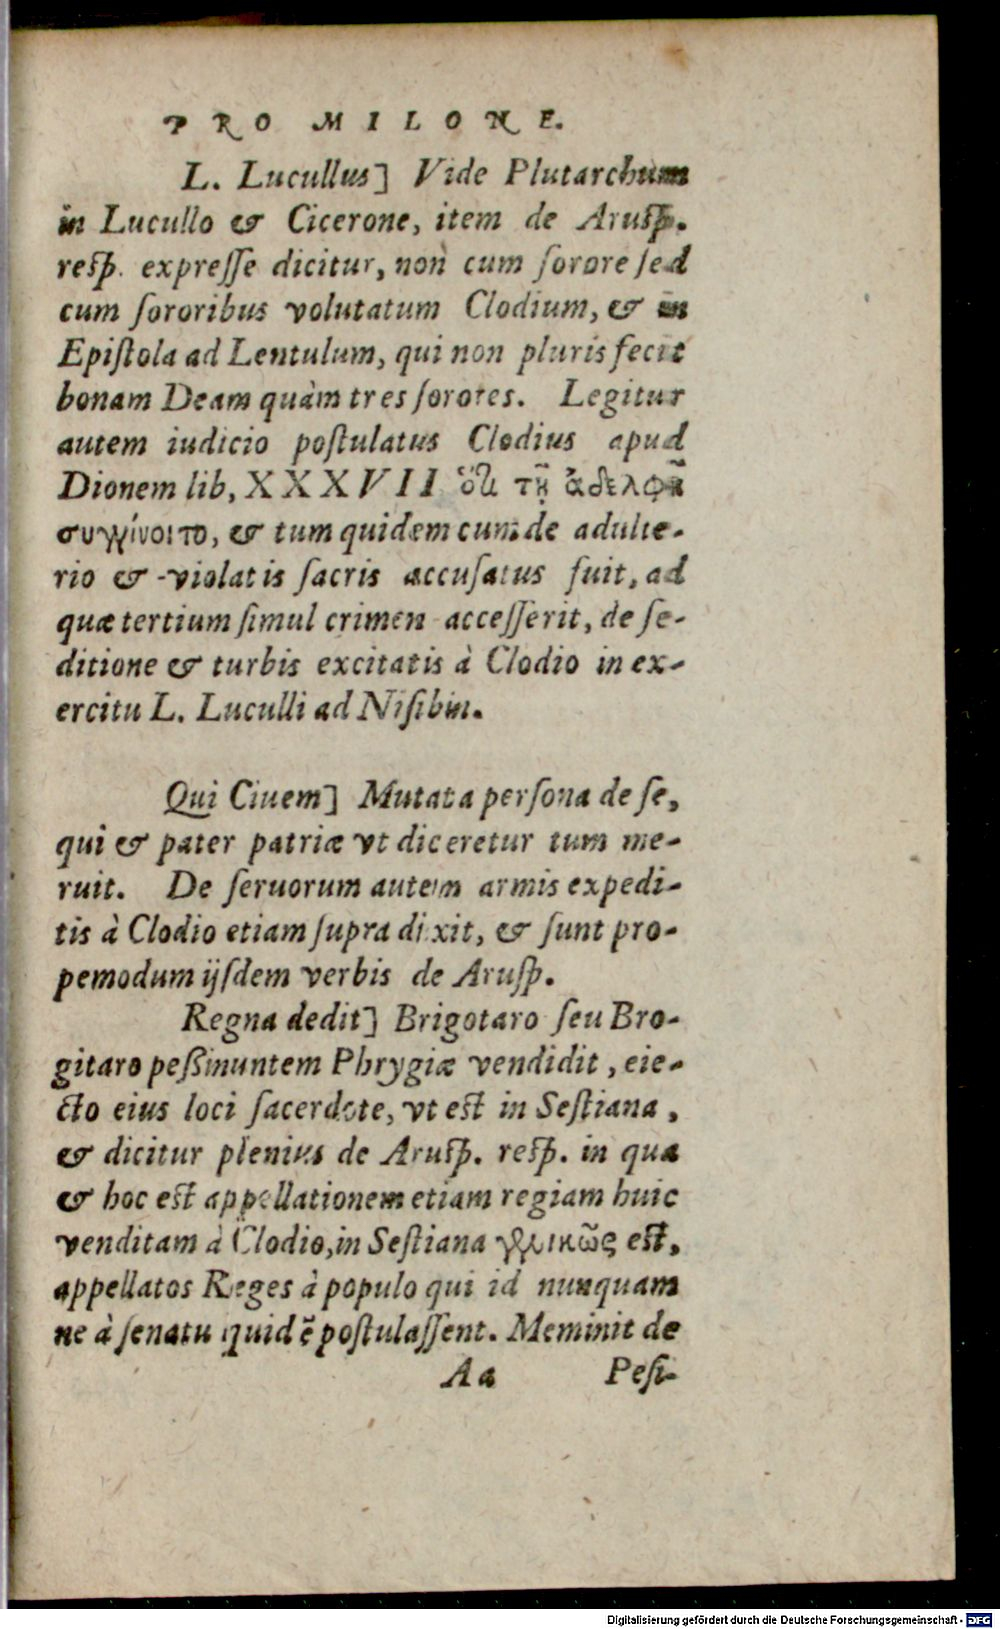 PRO MILONE.
L. Lucullus] Vide Plutarchum
in Lucullo & Cicerone, item de Arusp.
resp. expresse dicitur, non cum sorore sed
cum sororibus volutatum Clodium, & in
Epistola ad Lentulum, qui non pluris fecit
bonam Deam quàm tres sorores. Legitur
autem iudicio postulatus Clodius apud
Dionem lib, XXXVII ὅτι τῇ ἀδελφῇ
συγγίνοιτο, & tum quidem cum de adulte-
rio & violatis sacris accusatus fuit, ad
quæ tertium simul crimen accesserit, de se-
ditione & turbis excitatis à Clodio in ex-
ercitu L. Luculli ad Nisibin.
Qui Ciuem] Mutata persona de se,
qui & pater patriæ vt diceretur tum me-
ruit. De seruorum autem armis expedi-
tis à Clodio etiam supra dixit, & sunt pro-
pemodum ijsdem verbis de Arusp.
Regna dedit] Brigotaro seu Bro-
gitaro peßinuntem Phrygiæ vendidit, eie-
cto eius loci sacerdote, vt est in Sestiana,
& dicitur plenius de Arusp. resp. in qua
& hoc est appellationem etiam regiam huic
venditam à Clodio, in Sestiana est,
appellatos Reges à populo qui id nunquam
ne à senatu quidẽ postulassent. Meminit de
Aa Pesi-
Digitalisierung gefördert durch die Deutsche Forschungsgemeinschaft - DFG